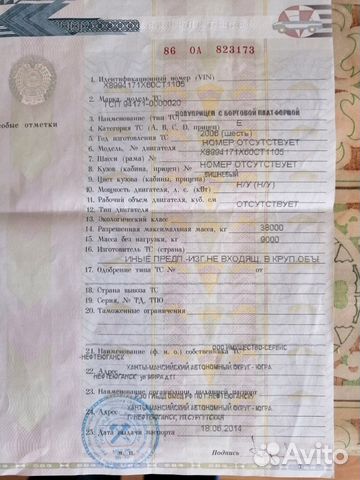 86 ОА 823173
1. Идентификационный номер (VIN) X8994171X60CT1105
2. Марка, модель ТС ТСП 94171-0000020
3. Наименование (тип ТС) ПОЛУПРИЦЕП С БОРТОВОЙ ПЛАТФОРМОЙ
особые отметки
4. Категория ТС (А, В, С, D, прицеп) Е
5. Год изготовления ТС 2006 (шесть)
6. Модель, № двигателя НОМЕР ОТСУТСТВУЕТ
7. Шасси (рама) № X8994171X60CT1105
8. Кузов (кабина, прицеп) № НОМЕР ОТСУТСТВУЕТ
9. Цвет кузова (кабины, прицепа) ВИШНЕВЫЙ
10. Мощность двигателя, л. с. (кВт) Н/У (Н/У)
11. Рабочий объем двигателя, куб. см
12. Тип двигателя ОТСУТСТВУЕТ
13. Экологический класс
14. Разрешенная максимальная масса, кг 38000
15. Масса без нагрузки, кг 9000
16. Изготовитель ТС (страна)
ИНЫЕ ПРЕДП.-ИЗГ.НЕ ВХОДЯЩ. В КРУП.ОБЪ.
17. Одобрение типа ТС № от
18. Страна вывоза ТС
19. Серия, № ТД, ТПО
20. Таможенные ограничения
21. Наименование (ф. и. о.) собственника ТС ООО ИМУЩЕСТВО-СЕРВИС
НЕФТЕЮГАНСК
22. Адрес ХАНТЫ-МАНСИЙСКИЙ АВТОНОМНЫЙ ОКРУГ - ЮГРА,
НЕФТЕЮГАНСК
23. Наименование организации, выдавшей паспорт
24. Адрес ХАНТЫ-МАНСИЙСКИЙ АВТОНОМНЫЙ ОКРУГ - ЮГРА,
25. Дата выдачи паспорта 18.06.2014
М. П. Подпись
Avito